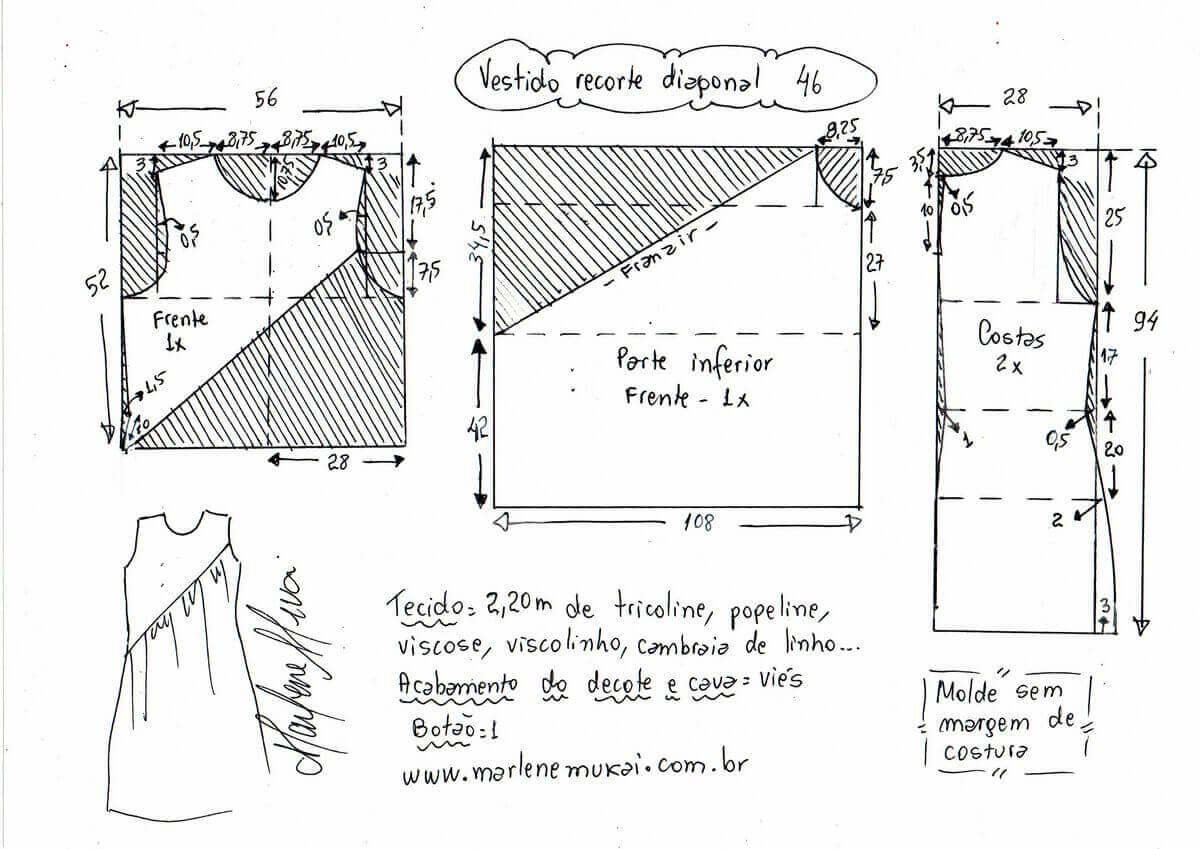 Vestido recorte diagonal 46
56
10,5 8,75 8,75 10,5
3
10,75
3
17,5
0,5
0,5
7,5
52
Frente
1x
1,5
10
28
8,25
7,5
34,5
- Franzir -
27
Parte inferior
Frente - 1x
42
108
28
8,75 10,5
3,5
3
0,5
10
25
94
Costas
2x
17
1
0,5
20
2
3
Tecido = 2,20m de tricoline, popeline,
viscose, viscolinho, cambraia de linho...
Acabamento do decote e cava = viés
Botão = 1
www.marlenemukai.com.br
Molde sem
margem de
costura